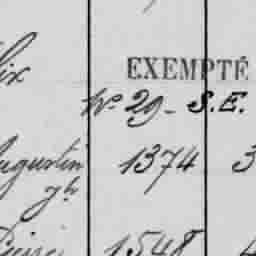 lix EXEMPTÉ
No 29 - S.E.
ugustin 1374 3
1548